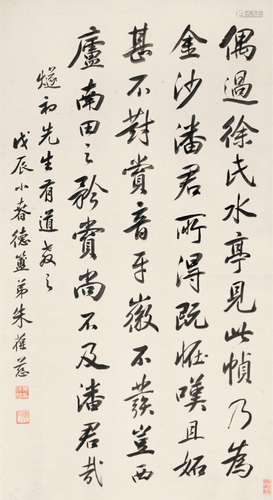 偶過徐氏水亭見此幀乃為
金沙潘君所得既怪嘆且妬
甚不對賞音牙徽不發豈西
廬南田之矜賞尚不及潘君哉
燧初先生有道教之
戊辰小春德鹽弟朱